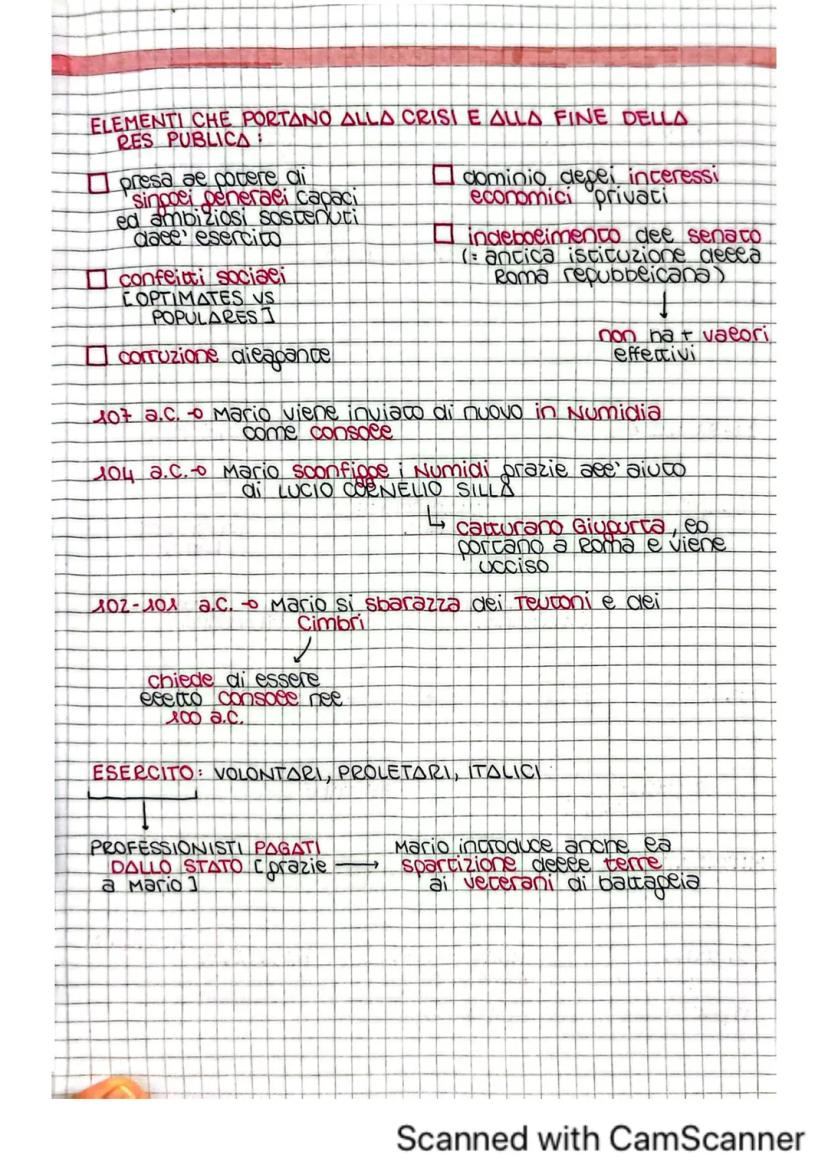 ELEMENTI CHE PORTANO ALLA CRISI E ALLA FINE DELLA
RES PUBLICA:
presa al potere di
singoli generali capaci
ed ambiziosi sostenuti
dall'esercito
conflitti sociali
[OPTIMATES VS
POPULARES]
corruzione dilagante
dominio degli interessi
economici privati
indebolimento del senato
(= antica istituzione della
Roma repubblicana)
non ha + valori
effettivi
107 a.C. → Mario viene inviato di nuovo in Numidia
come console
104 a.C. → Mario sconfigge i Numidi grazie all'aiuto
di LUCIO CORNELIO SILLA
↳ catturano Giugurta, lo
portano a Roma e viene
ucciso
102-101 a.C. → Mario si sbarazza dei Teutoni e dei
Cimbri
chiede di essere
eletto console nel
100 a.C.
ESERCITO: VOLONTARI, PROLETARI, ITALICI
PROFESSIONISTI PAGATI
DALLO STATO [grazie →
a Mario]
Mario introduce anche la
spartizione delle terre
ai veterani di battaglia
Scanned with CamScanner